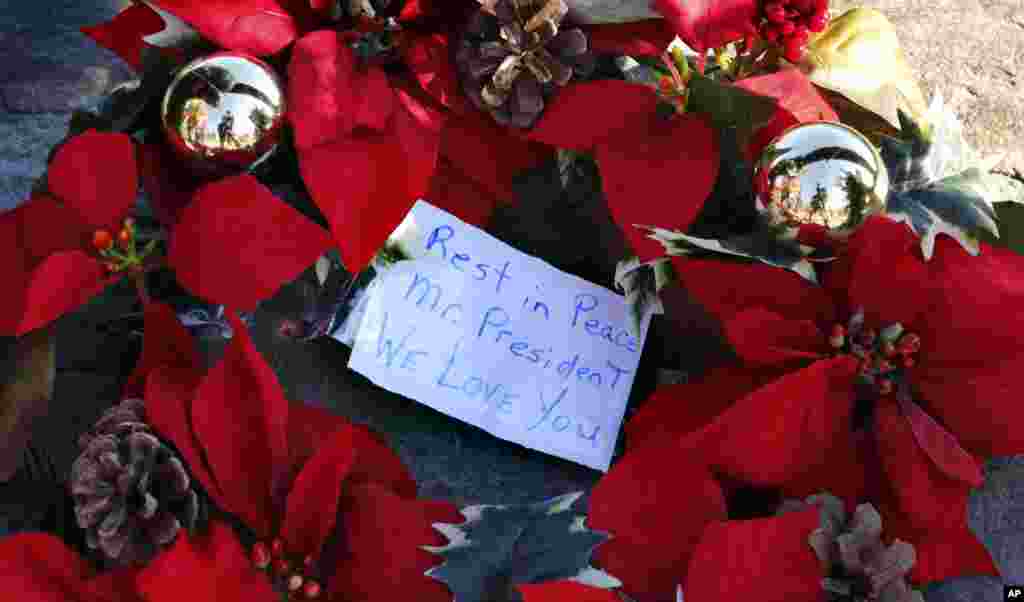 Rest in Peace
Mr. President
WE LOVE YOU
AP